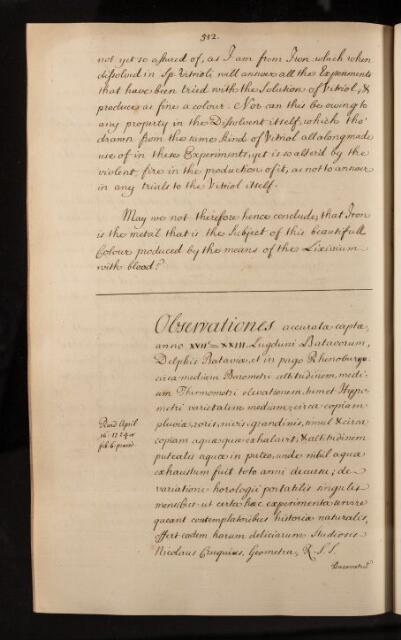 312.
not yet so assured of, as I am from Iron which when
dissolved in Sp: Vitrioli will answer all the Experiments
that have been tried with the Solution of Vitriol, &
produces as fine a colour. Nor can this be owing to
any property in the Dissolvent itself, which tho'
drawn from the same kind of Vitriol all along made
use of in these Experiments, yet is so alter'd by the
violent fire in the production of it, as not to answer
in any trials to the Vitriol itself.
May we not therefore hence conclude, that Iron
is the metal that is the Subject of this beautifull
Colour produced by the means of the Lixivium
with blood?
Observationes accurate captæ,
anno XVII XXIII. Lugduni Batavorum,
Delphis Batavis, et in pago Rhenoburgo.
circa mediam Barometri altitudinem, medi-
am Thermometri elevationem, tum et Hygro-
metri varietatem mediam; circa copiam
pluviæ, roris, nivis, grandinis, simul & circa
copiam aquæ quæ exhalavit, & altitudinem
putealis aquæ in puteo, unde nihil aquæ
exhaustum fuit toto anni decursu; de
variatione horologii portatilis singulis
mensibus: ut certa hæc experimenta servire
queant contemplatoribus historiæ naturalis,
offert eadem harum deliciarum Studiosis
Nicolaus Cruquius, Geometra, R. S. S.
Read April
16. 1724
Barometri